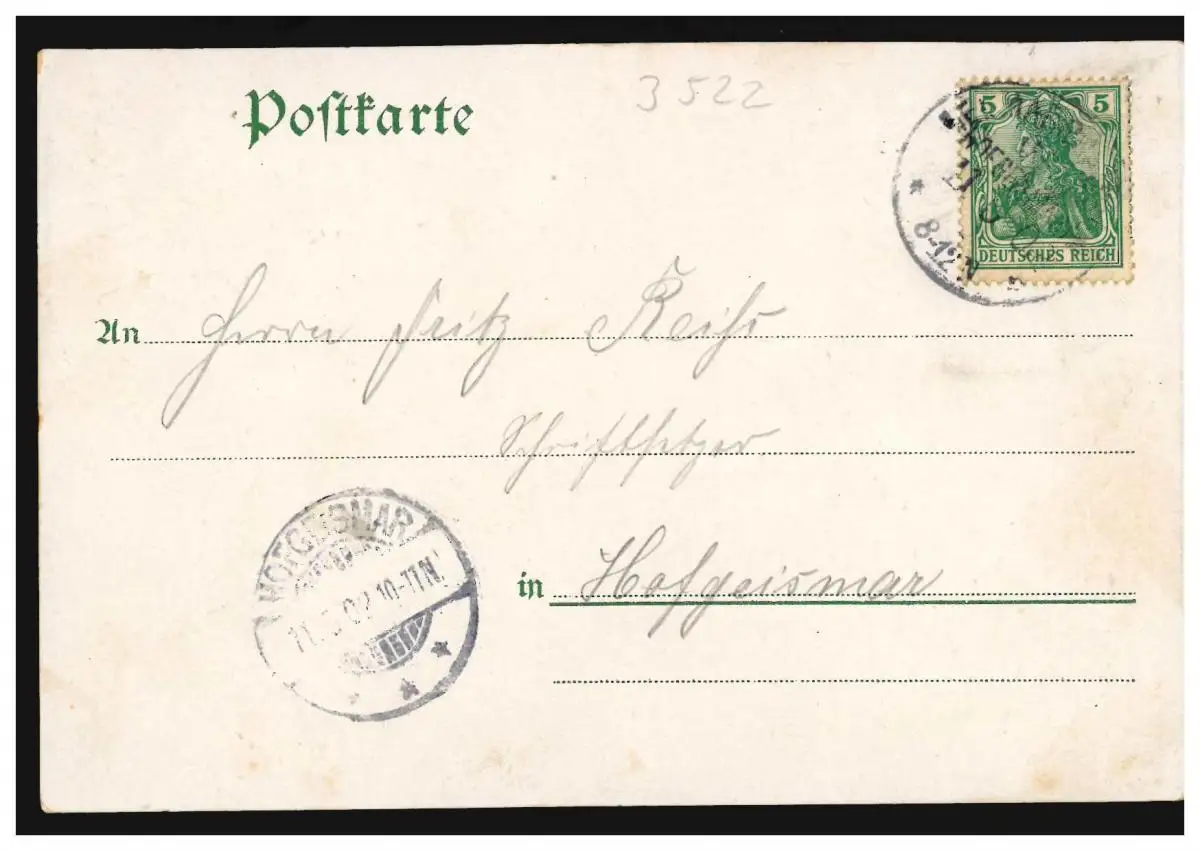 Postkarte
3522
5 5
DEUTSCHES REICH
8-12 N
An Herrn Fritz Reihs
Schriftsetzer
in Hofgeismar
HOFGEISMAR
11. 02 10-11 N.